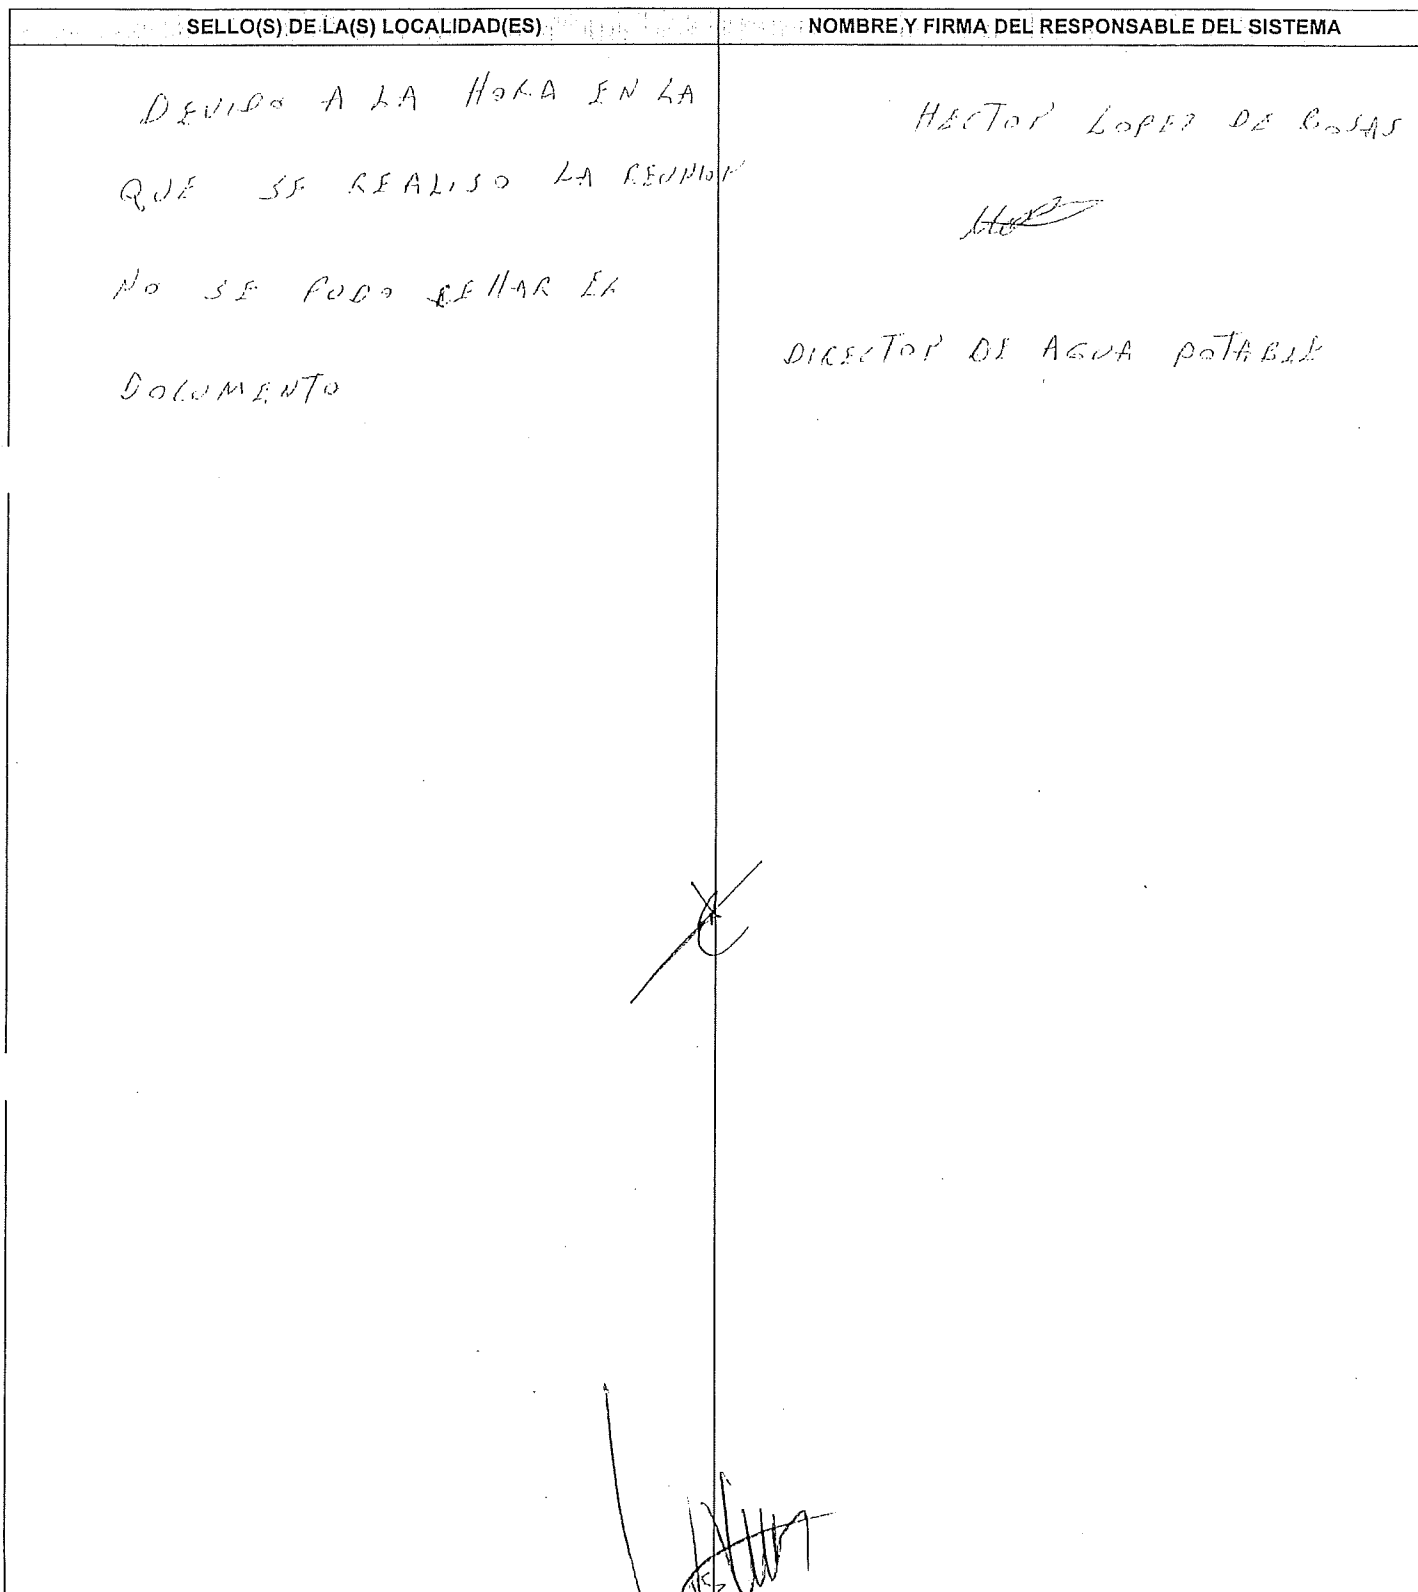 SELLO(S) DE LA(S) LOCALIDAD(ES)
DEVIDO A LA HORA EN LA
QUE SE REALISO LA REUNION
NO SE PUDO SELLAR EL
DOCUMENTO
NOMBRE Y FIRMA DEL RESPONSABLE DEL SISTEMA
HECTOR LOPEZ DE ROSAS
DIRECTOR DE AGUA POTABLE